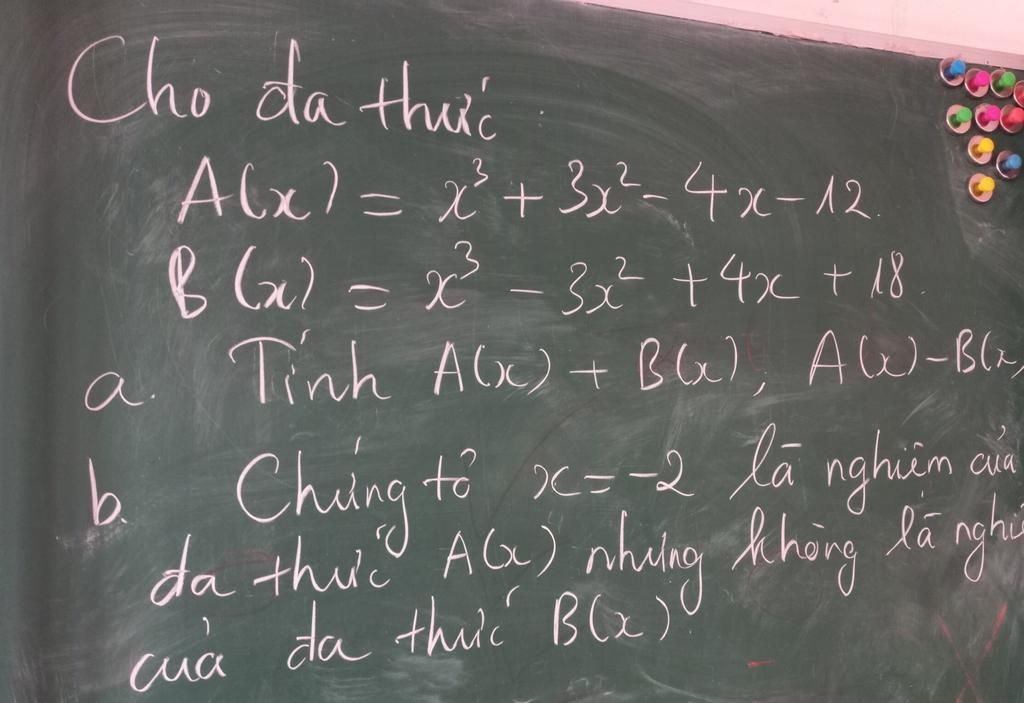 Cho đa thức
A(x) = x³ + 3x² - 4x - 12.
B(x) = x³ - 3x² + 4x + 18.
a. Tính A(x) + B(x); A(x) - B(x
b. Chứng tỏ x = -2 là nghiệm của
đa thức A(x) nhưng không là nghi
của đa thức B(x)